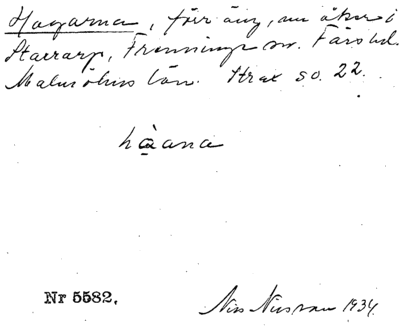 Hagarna, förr äng, nu åker i
Starrarp, Frenninge sn. Färs hd.
Malmöhus län. Strax so. 22.
hàana
Nr 5582.
Nils Nilsson 1934.